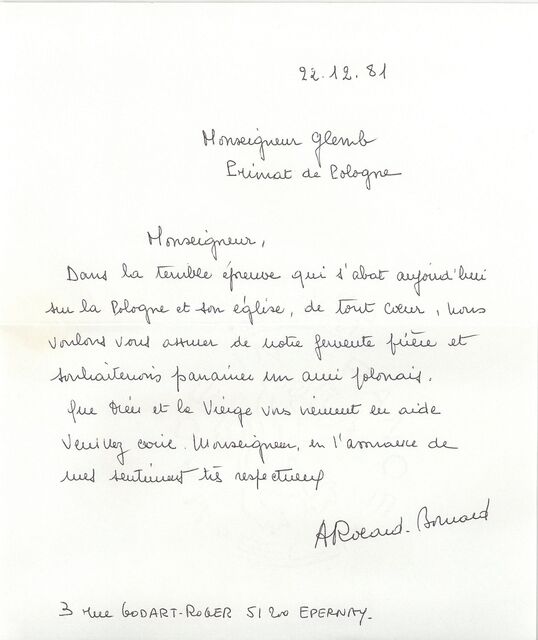 22.12.81
Monseigneur Glemb
Primat de Pologne
Monseigneur,
Dans la terrible épreuve qui s'abat aujourd'hui
sur la Pologne et son église, de tout cœur, nous
voulons vous assurer de notre fervente prière et
souhaiterions parrainer un ami polonais.
Que Dieu et la Vierge vous viennent en aide
Veuillez croire, Monseigneur, en l'assurance de
mes sentiments très respectueux
3 rue GODART-ROGER 51200 EPERNAY.